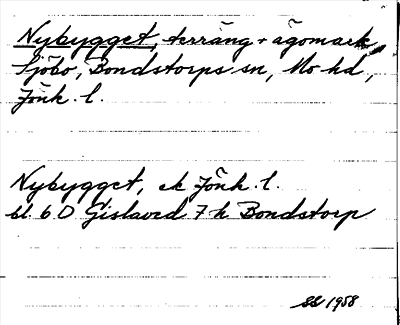 Nybygget, terräng + ägomark,
Sjöbo, Bondstorps sn, Mo hd,
Jönk. l.
Nybygget, ek Jönk. l.
bl. 6 D Gislaved 7 h Bondstorp
SS 1958